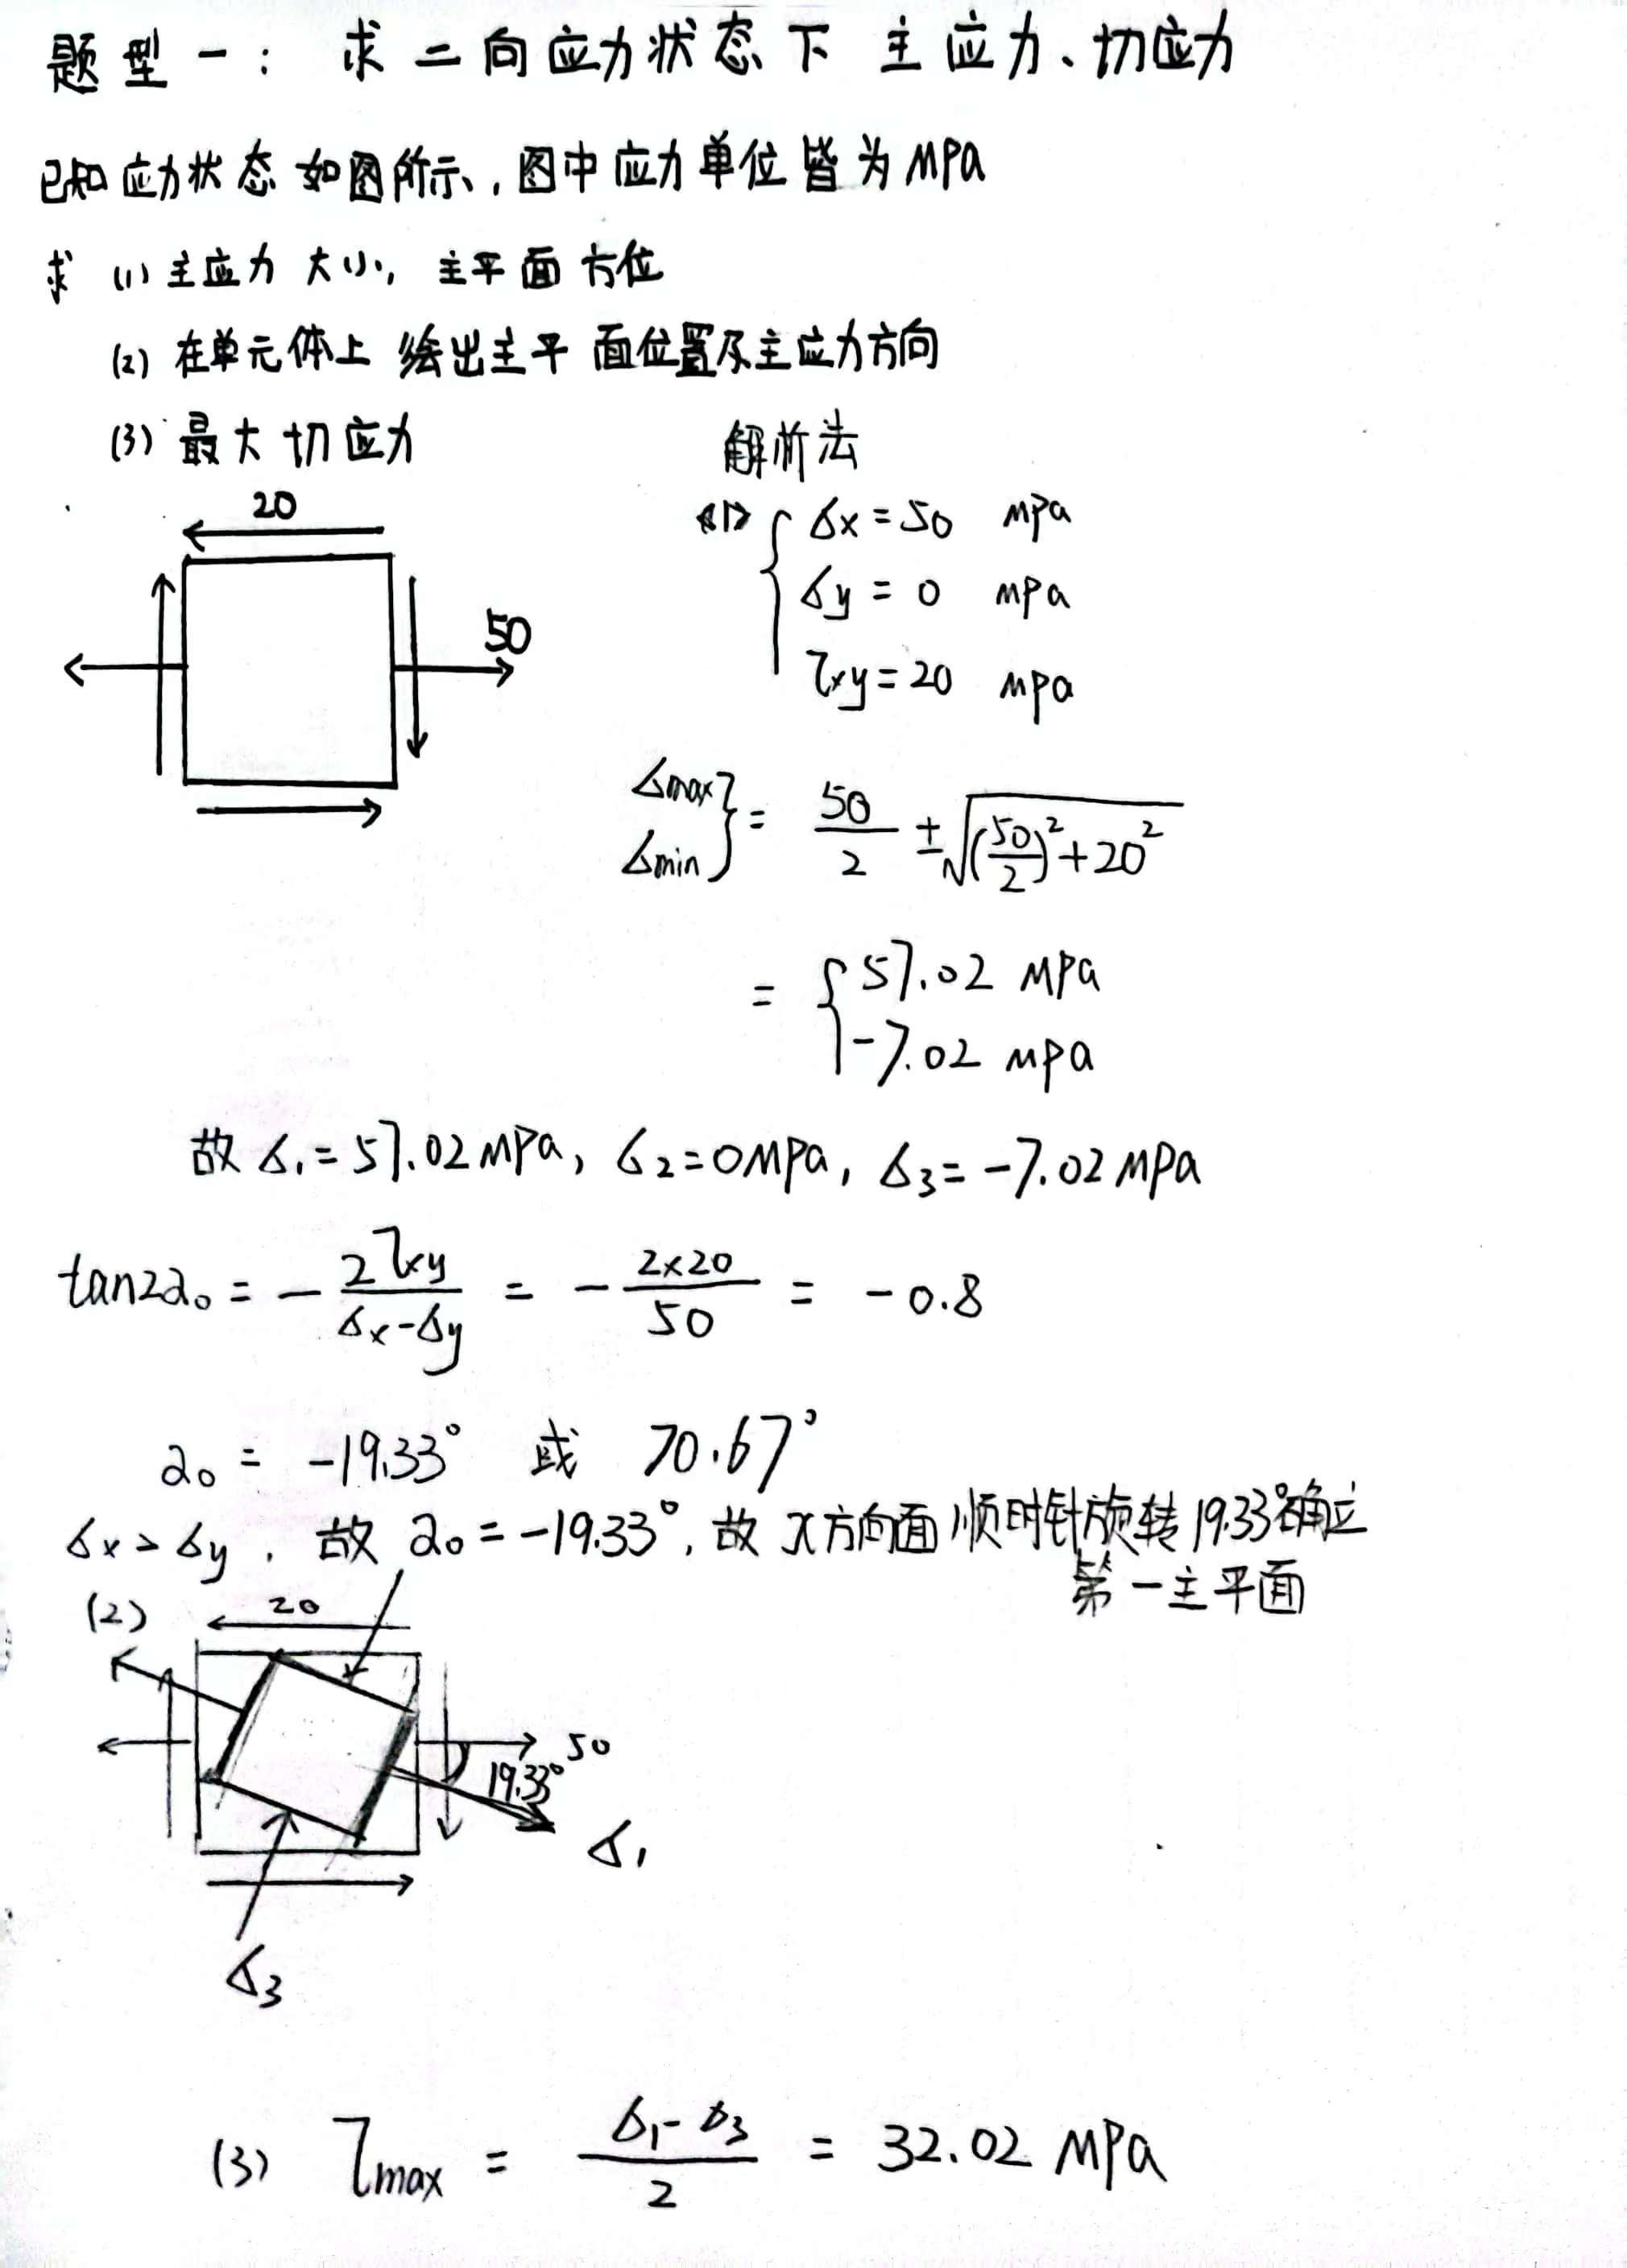 题型一：求二向应力状态下 主应力、切应力
已知应力状态如图所示，图中应力单位皆为MPa
求 (1) 主应力大小，主平面方位
(2) 在单元体上绘出主平面位置及主应力方向
(3) 最大切应力
解析法
20
50
<1> { σx = 50 MPa
σy = 0 MPa
τxy = 20 MPa
σmax
σmin } = 50/2 ± √((50/2)² + 20²)
= { 57.02 MPa
-7.02 MPa
故 σ₁ = 57.02 MPa, σ₂ = 0 MPa, σ₃ = -7.02 MPa
tan2α₀ = - 2τxy/(σx-σy) = - 2×20/50 = -0.8
α₀ = -19.33° 或 70.67°
σx > σy, 故 α₀ = -19.33°, 故 x方向面顺时针旋转19.33°确立
第一主平面
(2)
20
50
19.33°
σ₁
σ₃
(3) τmax = (σ₁-σ₃)/2 = 32.02 MPa